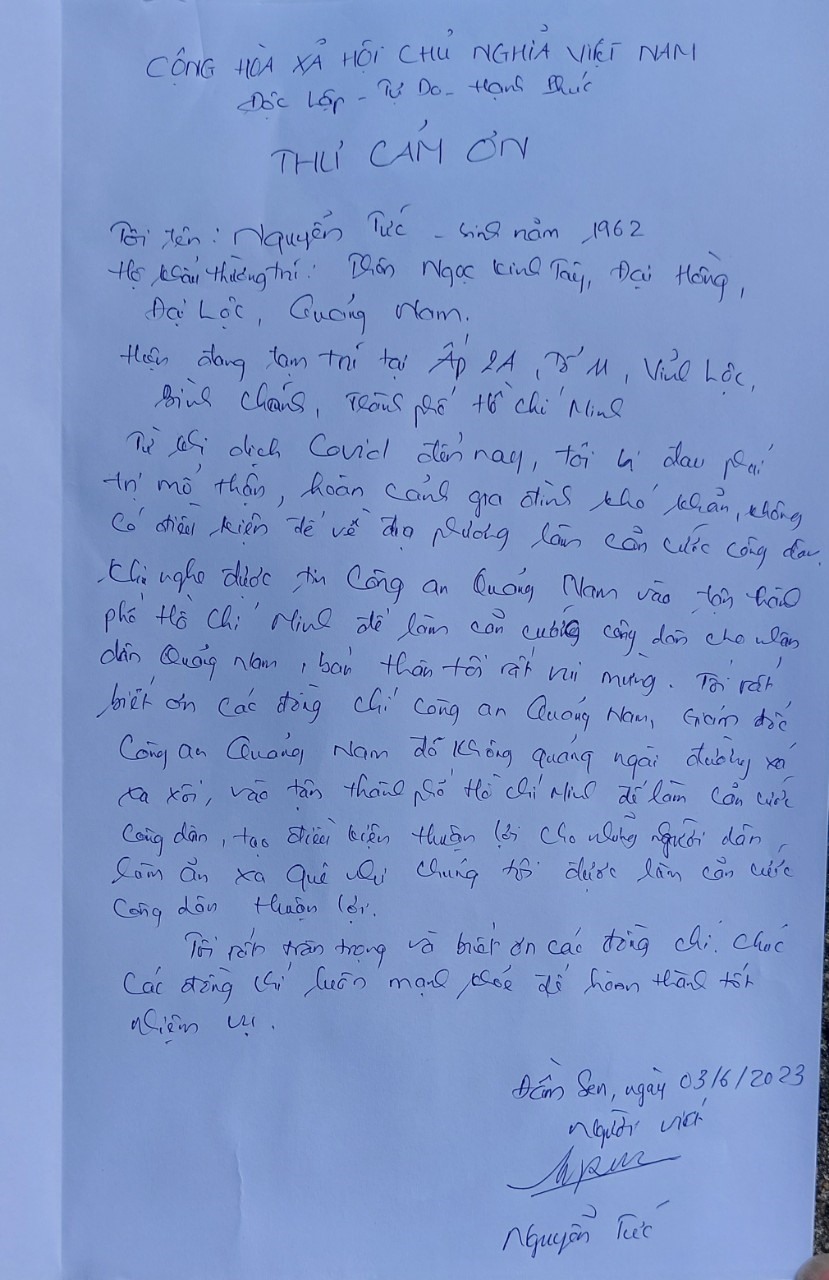 CỘNG HÒA XẢ HỘI CHỦ NGHỈA VIỆT NAM
Độc Lập - Tự Do - Hạnh Phúc
THƯ CẢM ƠN
Tôi tên: Nguyển Tức - Sinh năm 1962
Hộ khẩu thường trí: Thôn Ngọc Kinh Tây, Đại Hồng,
Đại Lộc, Quảng Nam.
Hiện đang tạm trí tại Ấp 2A, Vỉnh Lộc,
Bình Chánh, Thành phố Hồ Chí Minh
Từ khi dịch Covid đến nay, tôi bị đau phải
trị mổ thận, hoàn cảnh gia đình khó khăn, không
có điều kiện để về địa phương làm căn cước công dân.
Khi nghe được tin Công an Quảng Nam vào tận thành
phố Hồ Chí Minh để làm căn cước công dân cho nhân
dân Quảng Nam, bản thân tôi rất vui mừng. Tôi rất
biết ơn các đồng chí công an Quảng Nam, Giám đốc
Công an Quảng Nam đã không quảng ngại đường xá
xa xôi, vào tận thành phố Hồ Chí Minh để làm căn cước
công dân, tạo điều kiện thuận lợi cho những người dân
làm ăn xa quê như chúng tôi được làm căn cước
công dân thuận lợi.
Tôi rất trân trọng và biết ơn các đồng chí. Chúc
các đồng chí luôn mạnh khỏe để hoàn thành tốt
nhiệm vụ.
Đầm Sen, ngày 03/6/2023
Người viết
Nguyển Tức